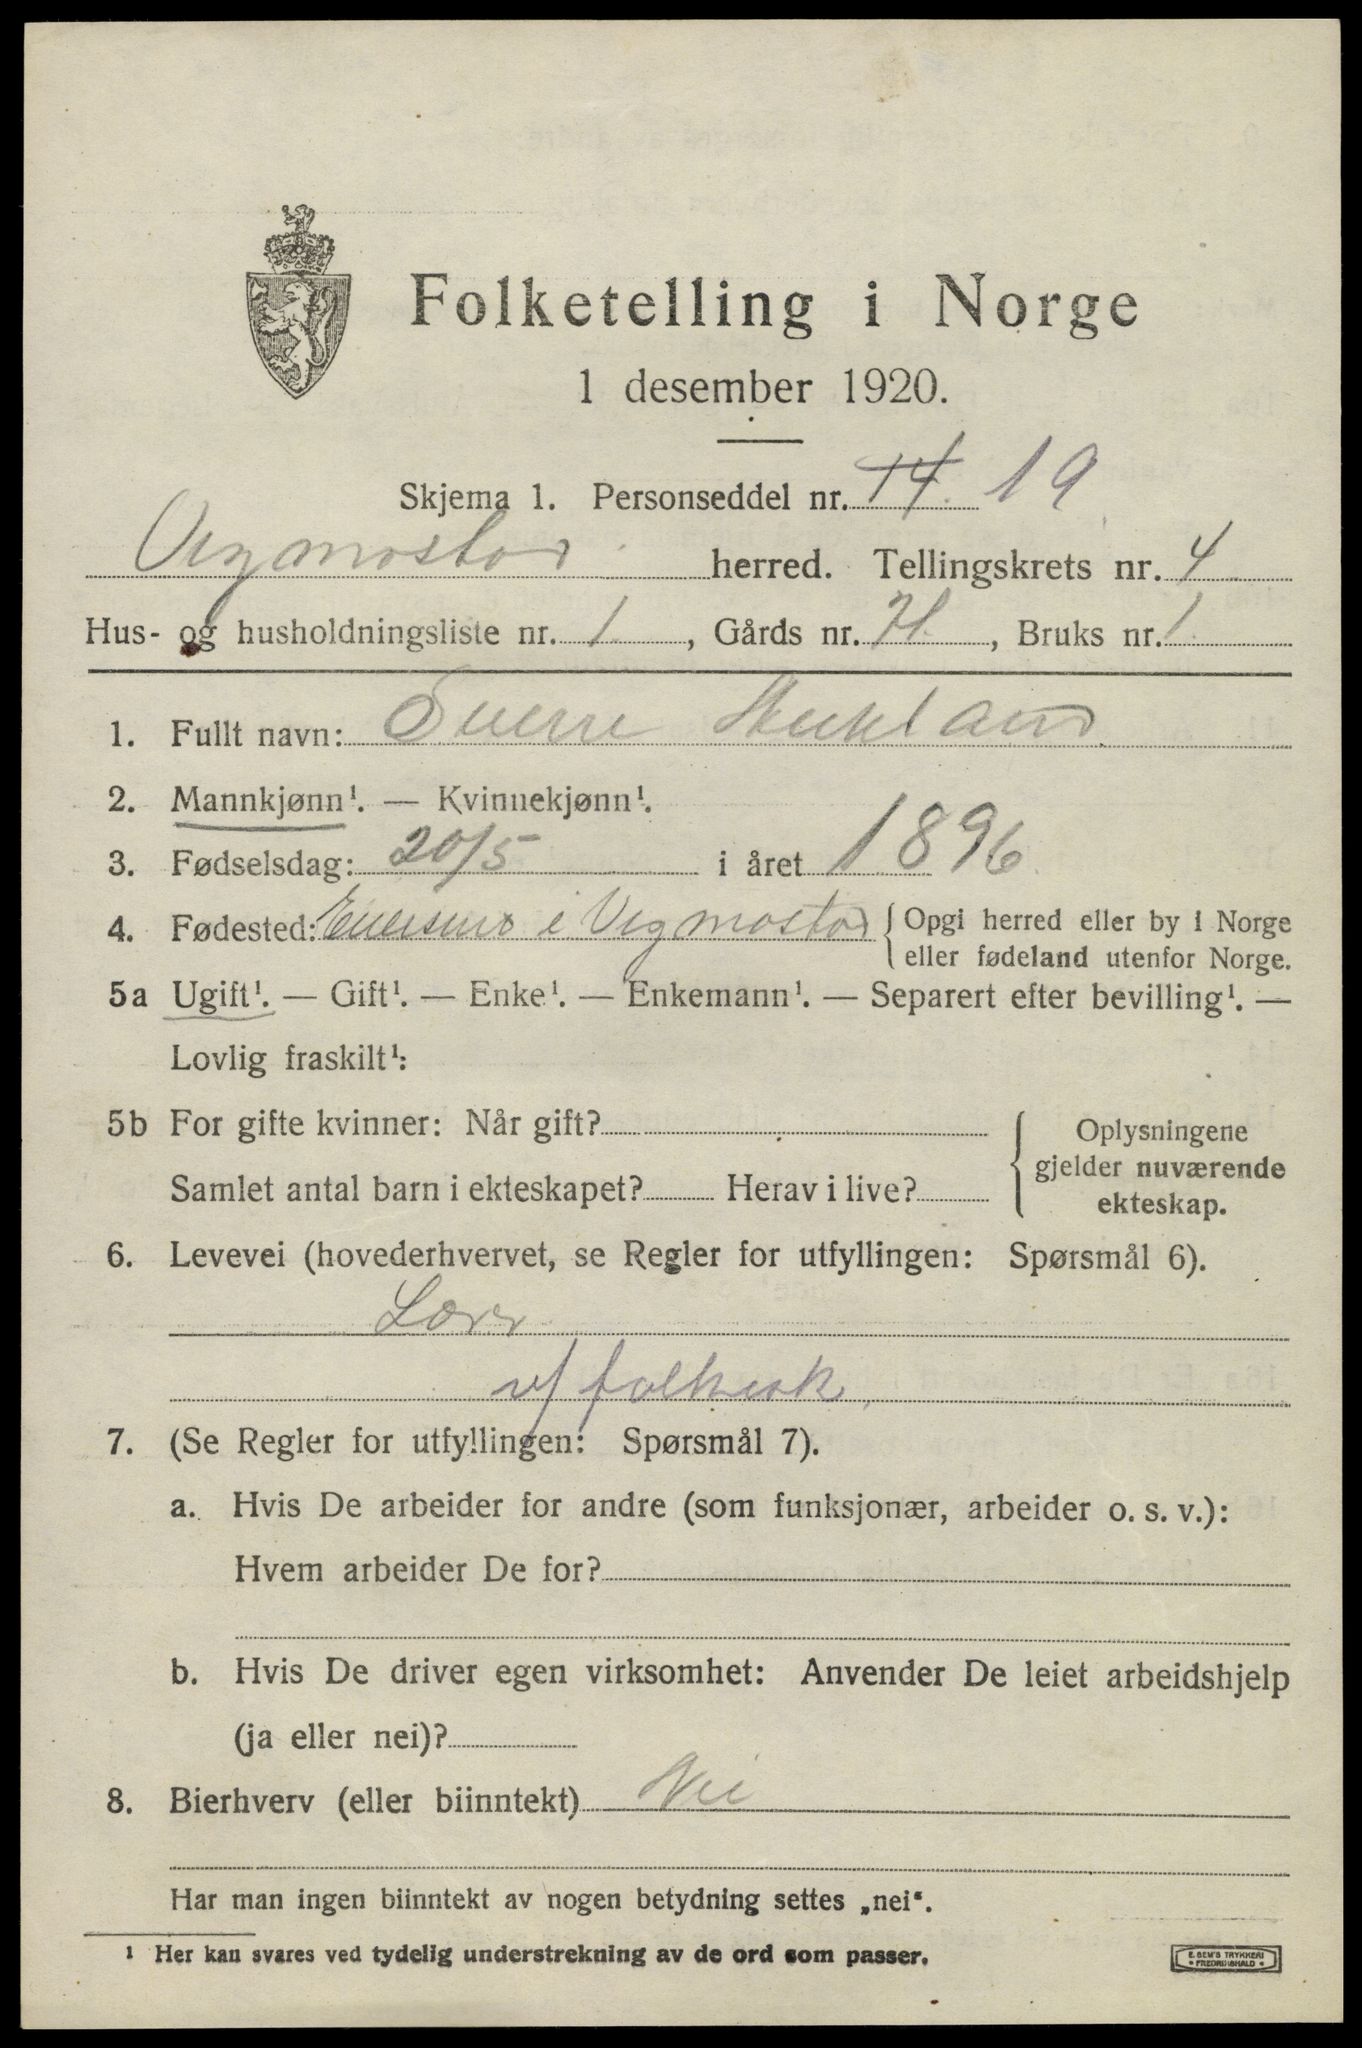 Folketelling i Norge
1 desember 1920.
Skjema 1. Personseddel nr. 14. 19
Vegmostad herred. Tellingskrets nr. 4
Hus- og husholdningsliste nr. 1, Gårds nr. 71., Bruks nr. 1.
1. Fullt navn: Sverre
2. Mannkjønn¹. — Kvinnekjønn¹.
3. Fødselsdag: 20/5 i året 1896
4. Fødested: i Vegmostad { Opgi herred eller by i Norge
eller fødeland utenfor Norge.
5a Ugift¹. — Gift¹. — Enke¹. — Enkemann¹. — Separert efter bevilling¹. —
Lovlig fraskilt¹:
5b For gifte kvinner: Når gift?
Samlet antal barn i ekteskapet? Herav i live?
Oplysningene
gjelder nuværende
ekteskap.
6. Levevei (hovederhvervet, se Regler for utfyllingen: Spørsmål 6).
Lærer
v/ folkesk.
7. (Se Regler for utfyllingen: Spørsmål 7).
a. Hvis De arbeider for andre (som funksjonær, arbeider o. s. v.):
Hvem arbeider De for?
b. Hvis De driver egen virksomhet: Anvender De leiet arbeidshjelp
(ja eller nei)?
8. Bierhverv (eller biinntekt) Nei
Har man ingen biinntekt av nogen betydning settes „nei“.
¹ Her kan svares ved tydelig understrekning av de ord som passer.
E. SEM'S TRYKKERI
• FREDRIKSHALD •